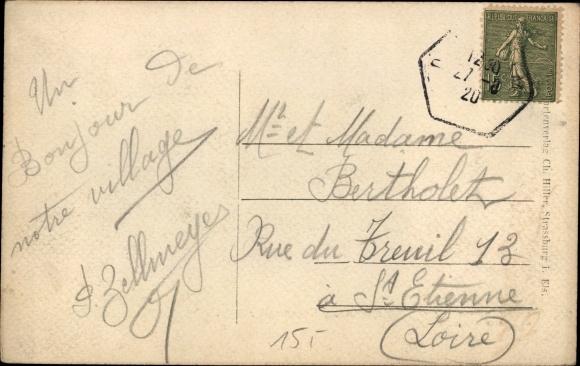 Un
De
Bonjour
notre village
Zellmeyer
Mr et Madame
Bertholet
Rue du Treuil 13
à St Etienne
(Loire)
REPUBLIQUE FRANÇAISE
12 30
27 - 8
20
15
Kartenverlag Ch. Hiller, Strassburg i. Els.